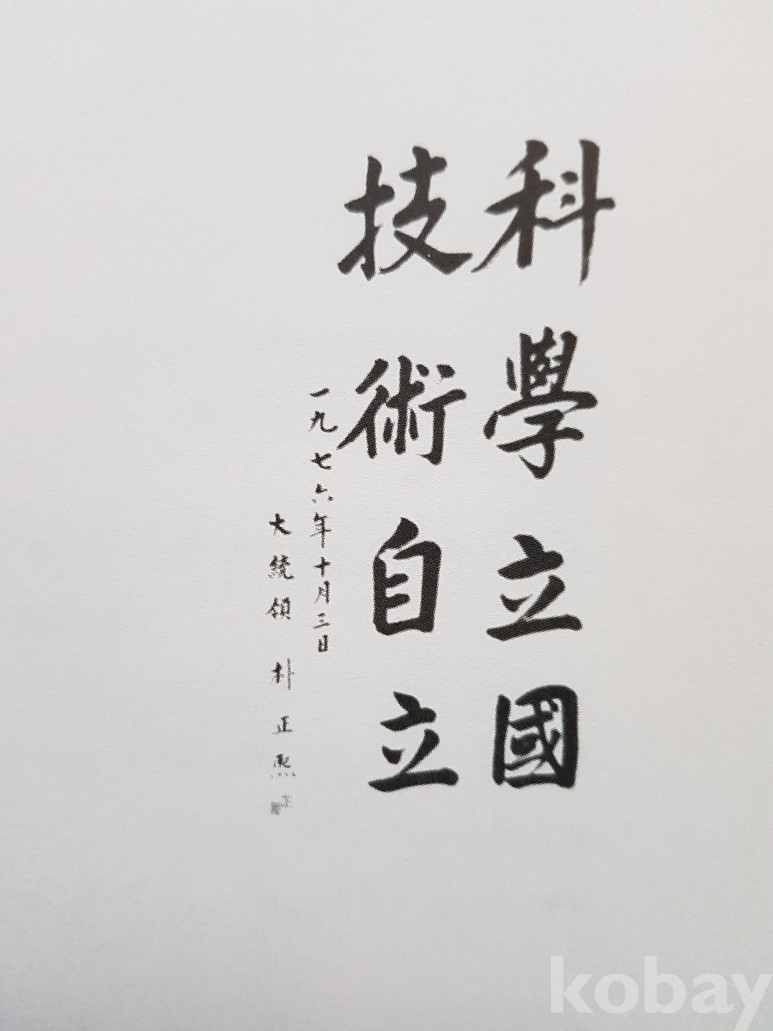 科學立國
技術自立
一九七六年十月三日
大統領 朴正熙
kobay